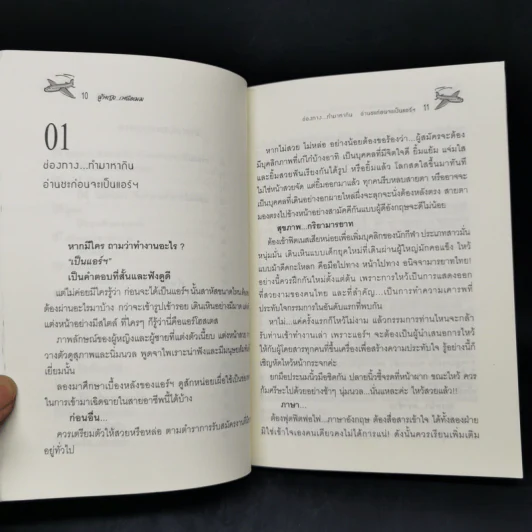 10
01
ช่องทาง...ทำมาหากิน
อ่านซะก่อนจะเป็นแอร์ฯ
หากมีใคร ถามว่าทำงานอะไร ?
"เป็นแอร์ฯ"
เป็นคำตอบที่สั้นและฟังดูดี
แต่ไม่ค่อยมีใครรู้ว่า ก่อนจะได้เป็นแอร์ฯ นั้นสาหัสขนาดไหน
ต้องผ่านอะไรมาบ้าง กว่าจะเข้ารูปเข้ารอย เดินเหินอย่างมีมาด
แต่งหน้าอย่างมีสไตล์ ที่ใครๆ ก็รู้ว่านี่คือแอร์โฮสเตส
ภาพลักษณ์ของผู้หญิงและผู้ชายที่แต่งตัวเนี้ยบ
วางตัวดูสุภาพและนิ่มนวล พูดจาไพเราะน่าฟังและมีมนุษย
เยี่ยมนั้น
ลองมาศึกษาเบื้องหลังของแอร์ฯ ดูสักหน่อยเผื่อใช้เป็น
ในการเข้ามาเฉิดฉายในสายอาชีพนี้ได้บ้าง
ก่อนอื่น...
ควรเตรียมตัวให้สวยหรือหล่อ ตามตำราการรับสมัคร
อยู่ทั่วไป
ช่องทาง...ทำมาหากิน อ่านซะก่อนจะเป็นแอร์ฯ 11
หากไม่สวย ไม่หล่อ อย่างน้อยต้องขอร้องว่า... ผู้สมัครจะต้อง
มีบุคลิกภาพที่เก๋ไก๋บ้างอาทิ เป็นบุคคลที่มีจิตใจดี ยิ้มแย้ม แจ่มใส
และยิ้มสวยฟันเรียงกันได้รูป หรือยิ้มแล้ว โลกสดใสขึ้นมาทันที
ไม่ใช่หน้าสวยจัด แต่ยิ้มออกมาแล้ว ทุกคนรีบหลบสายตา หรืออาจจะ
เป็นบุคคลที่เดินอย่างอกผายไหล่ผึ่งจะลุกจะนั่งต้องหลังตรง สายตา
มองตรงไปข้างหน้าอย่างสามัคคีกันแบบผู้ดีอังกฤษจะดีไม่น้อย
สุขภาพ...กริยามารยาท
ต้องเข้าฟิตเนสเสียหน่อยเพื่อเพิ่มบุคลิกของนักกีฬา ประเภทสาวมั่น
หนุ่มมั่น เดินเหินแบบเด็กยุคใหม่ที่เดินผ่านผู้ใหญ่มักคอแข็ง ไหว้
แบบม้าดีดกะโหลก คือมือไปทาง หน้าไปทาง อนิจจามารยาทไทย!
อย่างนี้ควรฝึกกันใหม่ตั้งแต่ต้น เพราะการไหว้เป็นการแสดงออก
ที่สวยงามของคนไทย และที่สำคัญ...เป็นการทำความเคารพที่
ประทับใจกรรมการในอันดับแรกที่พบกัน
หาไม่...แค่ครั้งแรกก็ไหว้ไม่งาม แล้วกรรมการท่านไหนจะกล้า
รับท่านเข้าทำงานเล่า เพราะแอร์ฯ จะต้องเป็นผู้นำเสนอการไหว้
ให้กับผู้โดยสารทุกคนที่ขึ้นเครื่องเพื่อสร้างความประทับใจ รู้อย่างนี้ก็
เชิญหัดไหว้หน้ากระจกค่ะ
ยกมือประนมนิ้วมือชิดกัน ปลายนิ้วชี้จรดที่หน้าผาก ขณะไหว้ ควร
ก้มศรีษะไปด้วยอย่างช้าๆ นุ่มนวล...นั่นแหละค่ะ ไหว้สวยแล้ว!!
ภาษา...
ต้องฟุตฟิตฟอไฟ...ภาษาอังกฤษ ต้องสื่อสารเข้าใจ ได้ทั้งสองฝ่าย
มิใช่เข้าใจเองคนเดียวคงไม่ได้การแน่! ดังนั้นควรเรียนเพิ่มเติม